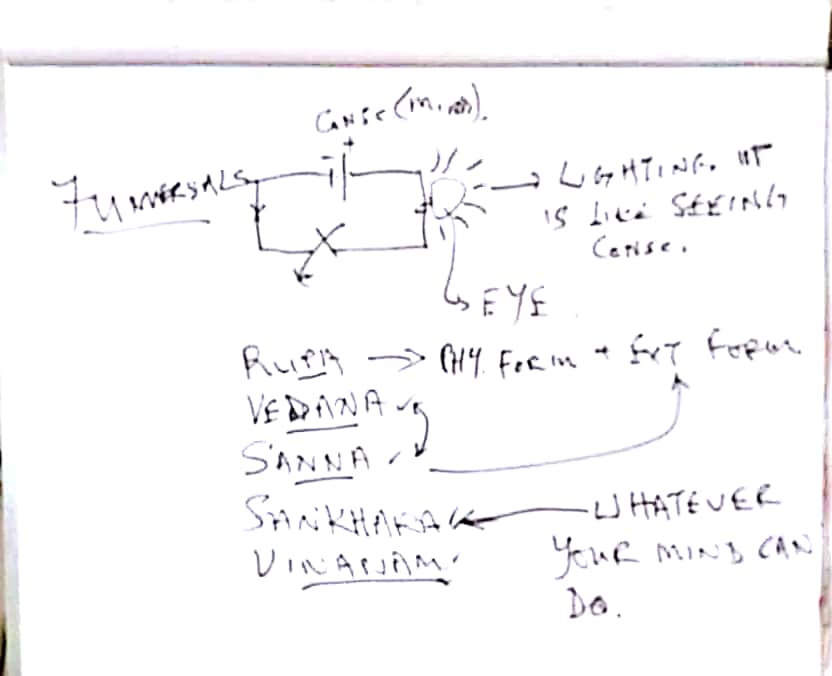 Consc (mind).
7 UNIVERSALS
→ LIGHTING. IT
IS Like SEEING
Conse.
EYE
RUPA → PHY. FORM + EXT FORM
VEDANA
SANNA
SANKHARA ← WHATEVER
VINANAM YOUR MIND CAN
DO.